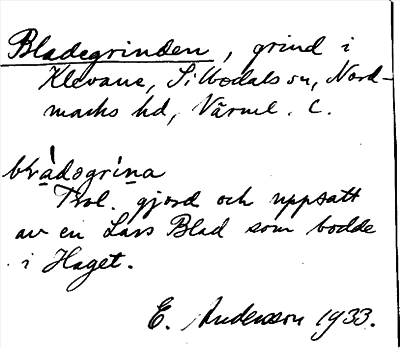 Bladegrinden, grind i
Klevane, Sillbodals sn, Nord-
marks hd, Värml. C.
blⱥ̀dəgrina
Trol. gjord och uppsatt
av en Lars Blad som bodde
i Haget.
E. Andersson 1933.